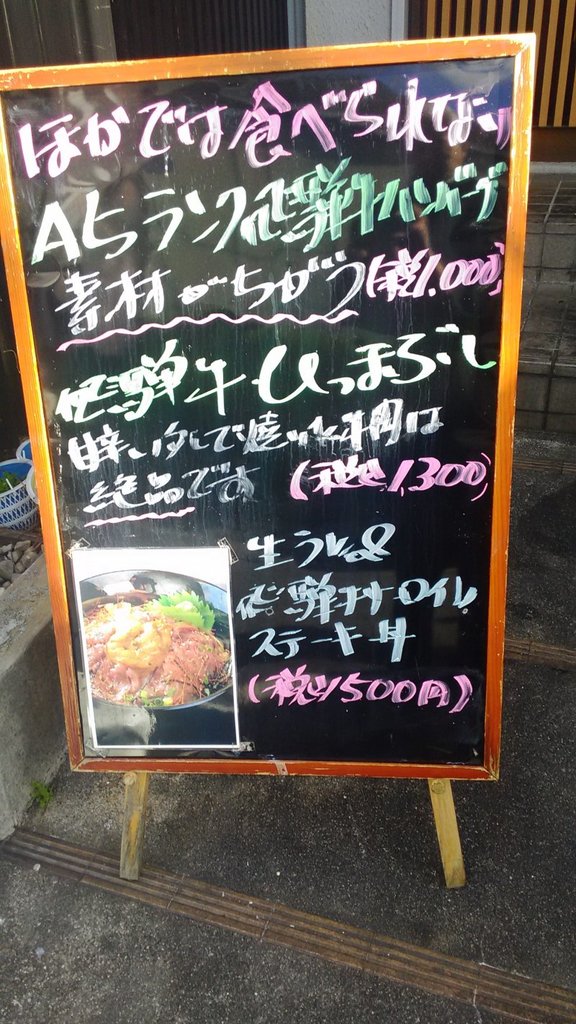 ほかでは食べられない
A5ランク飛騨牛ハンバーグ
素材がちがう(税1,000)
飛騨牛ひつまぶし
甘いタレで焼いた牛肉は
絶品です (税込1,300)
生うに&
飛騨牛サーロイン
ステーキ丼
(税込1500円)